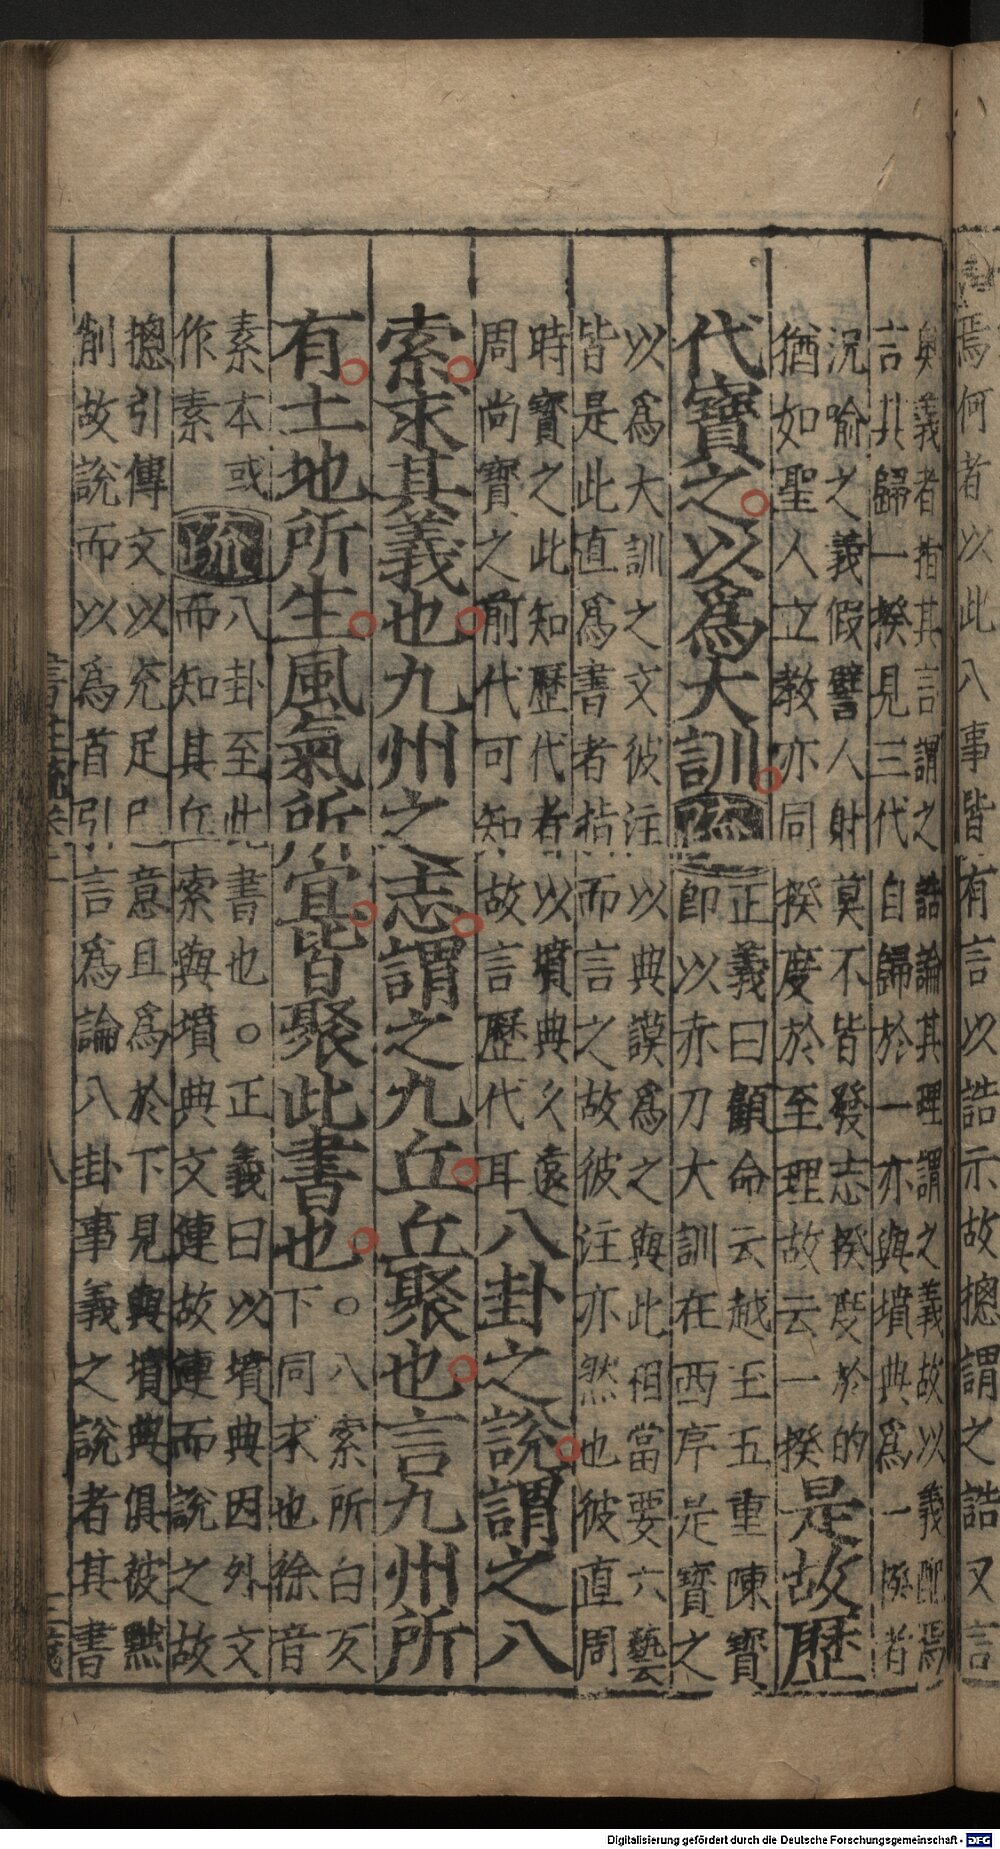 焉何者以此八事皆有言以誥示故摠謂之誥又言
奥義者指其言謂之誥論其理謂之義故以義配焉
言其歸一揆見三代自歸於一亦與墳典爲一揆者
况喻之義假譬人射莫不皆發志揆度於的
猶如聖人立教亦同揆度於至理故云一揆是故歷
代寳之以爲大訓疏
正義曰顧命云越玉五重陳寳
即以赤刀大訓在西序是寳之
以爲大訓之文彼注以典謨爲之與此相當要六藝
皆是此直爲書者指而言之故彼注亦然也彼直周
時寳之此知歷代者以墳典久遠
周尚寳之前代可知故言歷代耳八卦之説謂之八
索求其義也九州之志謂之九丘丘聚也言九州所
有土地所生風氣所宜皆聚此書也
○八索所白反
下同求也徐音
素本或
作素疏
八卦至此書也○正義曰以墳典因外文
而知其丘索與墳典文連故連而說之故
摠引傳文以充足已意且爲於下見與墳典俱被黜
削故說而以爲首引言爲論八卦事義之說者其書
Digitalisierung gefördert durch die Deutsche Forschungsgemeinschaft - DFG